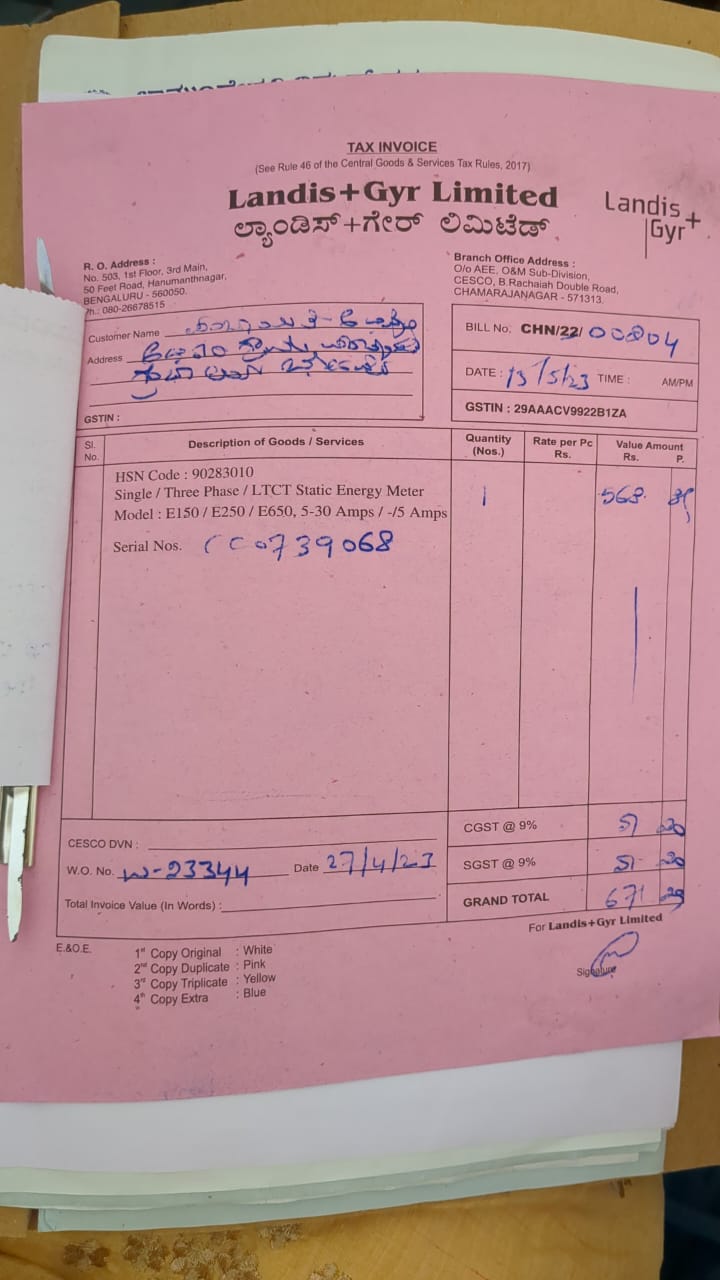 TAX INVOICE
(See Rule 46 of the Central Goods & Services Tax Rules, 2017)
Landis+Gyr Limited
ಲ್ಯಾಂಡಿಸ್+ಗೇರ್ ಲಿಮಿಟೆಡ್
Landis+
Gyr
R. O. Address :
No. 503, 1st Floor, 3rd Main,
50 Feet Road, Hanumanthnagar,
BENGALURU - 560050.
Ph.: 080-26678515
Branch Office Address :
O/o AEE, O&M Sub-Division,
CESCO, B.Rachaiah Double Road,
CHAMARAJANAGAR - 571313.
Customer Name
Address
GSTIN :
BILL No. CHN/22/ 00804
DATE : 13/5/23 TIME : AM/PM
GSTIN : 29AAACV9922B1ZA
Sl. No. Description of Goods / Services Quantity (Nos.) Rate per Pc Rs. Value Amount Rs. P.
HSN Code : 90283010
Single / Three Phase / LTCT Static Energy Meter 1 568.
Model : E150 / E250 / E650, 5-30 Amps / -/5 Amps
Serial Nos. CC0739068
CESCO DVN :
W.O. No. W-23344 Date 27/4/23
Total Invoice Value (In Words) :
CGST @ 9% 51 20
SGST @ 9% 51 20
GRAND TOTAL 671
For Landis+Gyr Limited
Signature
E.&O.E.
1st Copy Original : White
2nd Copy Duplicate : Pink
3rd Copy Triplicate : Yellow
4th Copy Extra : Blue